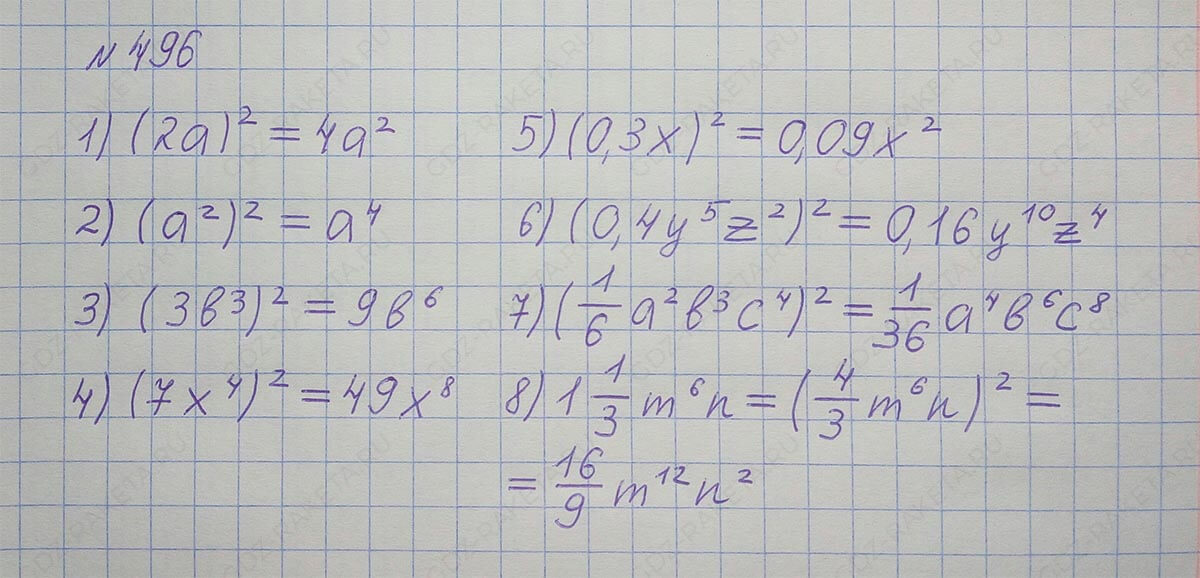 № 496
1) (2a)² = 4a²
2) (a²)² = a⁴
3) (3b³)² = 9b⁶
4) (7x⁴)² = 49x⁸
5) (0,3x)² = 0,09x²
6) (0,4y⁵z²)² = 0,16y¹⁰z⁴
7) (1/6 a²b³c⁴)² = 1/36 a⁴b⁶c⁸
8) 1 1/3 m⁶n = (4/3 m⁶n)² =
= 16/9 m¹²n²
GDZ-RAKETA.RU